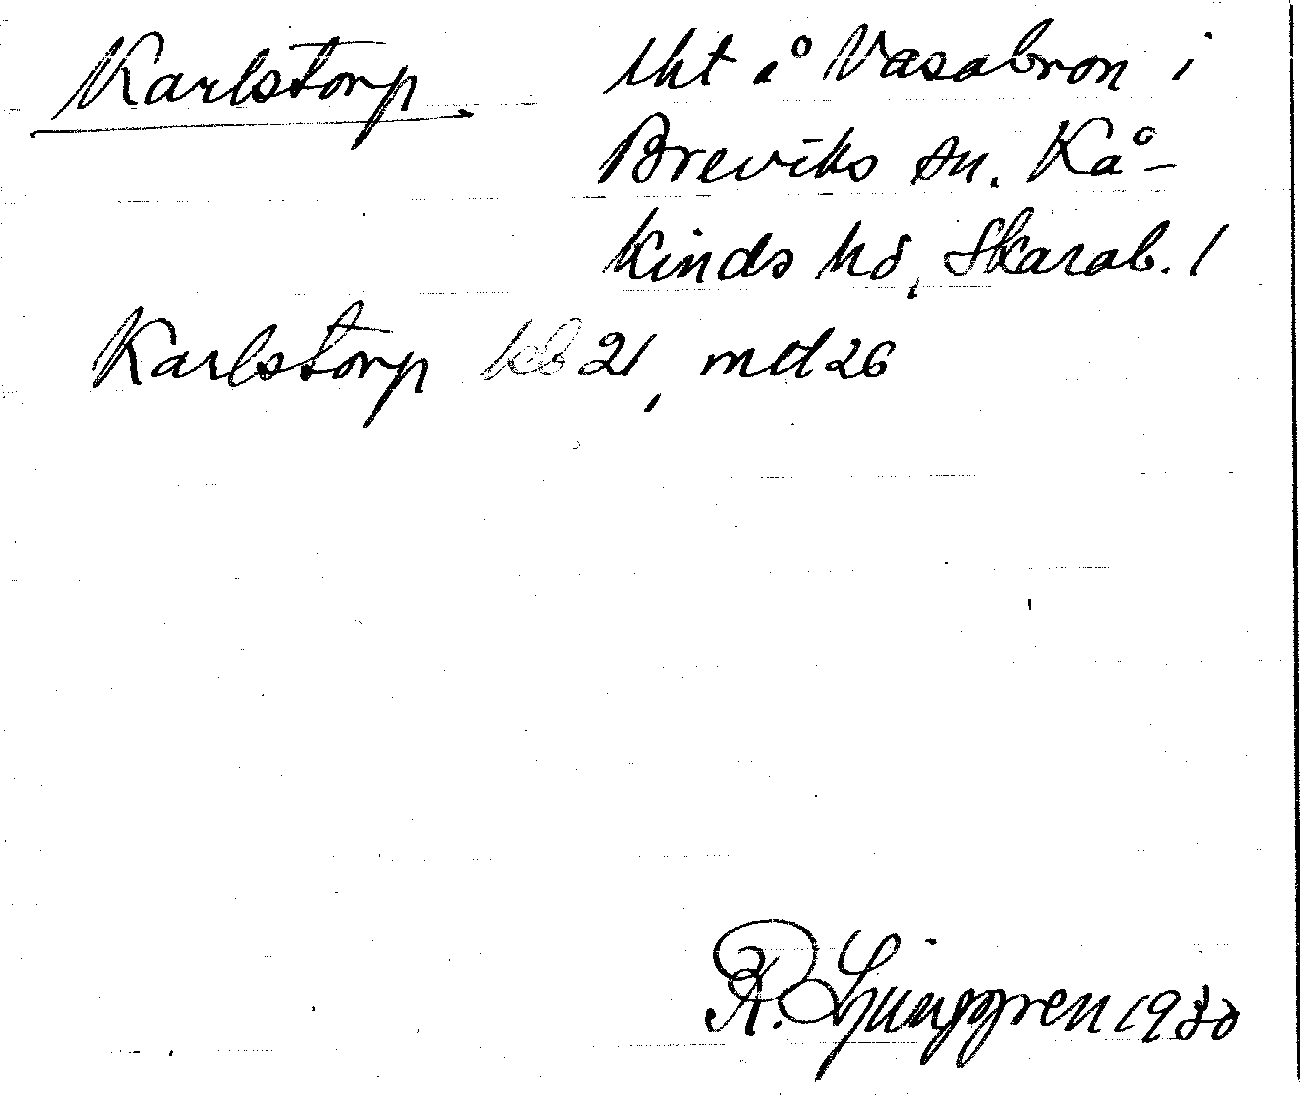 Karlstorp
lht å Vasabron i
Breviks sn. Kå-
kinds hd, Skarab. l
Karlstorp kb 21, md 26
R. Ljunggren 1930